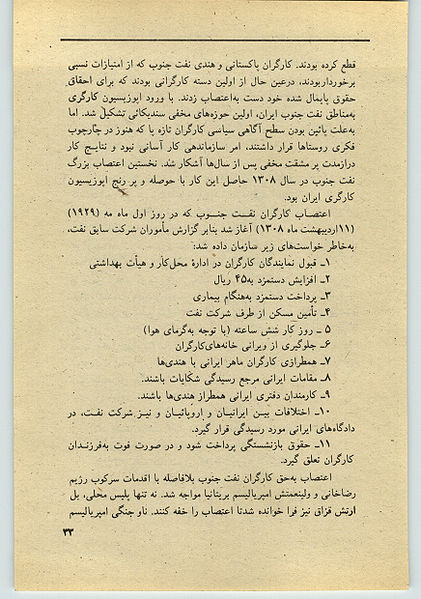 قطع کرده بودند. کارگران پاکستانی و هندی نفت جنوب که از امتیازات نسبی
برخورداربودند، درعین حال از اولین دسته کارگرانی بودند که برای احقاق
حقوق پایمال شده خود دست به‌اعتصاب زدند. با ورود اپوزیسیون کارگری
به‌مناطق نفت جنوب ایران، اولین حوزه‌های مخفی سندیکائی تشکیل شد. اما
به‌علت پائین بودن سطح آگاهی سیاسی کارگران تازه پا که هنوز در چارچوب
فکری روستاها قرار داشتند، امر سازماندهی کار آسانی نبود و نتایج کار
درازمدت پر مشقت مخفی پس از سال‌ها آشکار شد. نخستین اعتصاب بزرگ
نفت جنوب در سال ۱۳۰۸ حاصل این کار با حوصله و پر رنج اپوزیسیون
کارگری ایران بود.
اعتصاب کارگران نفت جنوب که در روز اول ماه مه (۱۹۲۹)
(۱۱اردیبهشت ماه ۱۳۰۸) آغاز شد بنابر گزارش مأموران شرکت سابق نفت،
به‌خاطر خواست‌های زیر سازمان داده شد:
۱ـ قبول نمایندگان کارگران در ادارهٔ محل‌کار و هیأت بهداشتی
۲ـ افزایش دستمزد به۴۵ ریال
۳ـ پرداخت دستمزد به‌هنگام بیماری
۴ـ تأمین مسکن از طرف شرکت نفت
۵ ـ روز کار شش ساعته (با توجه به‌گرمای هوا)
۶ـ جلوگیری از ویرانی خانه‌های‌کارگران
۷ـ همطرازی کارگران ماهر ایرانی با هندی‌ها
۸ـ مقامات ایرانی مرجع رسیدگی شکایات باشند.
۹ـ کارمندان دفتری ایرانی همطراز هندی‌ها باشند.
۱۰ـ اختلافات بین ایرانیان و اروپائیان و نیز شرکت نفت، در
دادگاه‌های ایرانی مورد رسیدگی قرار گیرد.
۱۱ـ حقوق بازنشستگی پرداخت شود و در صورت فوت به‌فرزندان
کارگران تعلق گیرد.
اعتصاب به‌حق کارگران نفت جنوب بلافاصله با اقدمات سرکوب رژیم
رضاخانی و ولینعمتش امپریالیسم بریتانیا مواجه شد. نه تنها پلیس محلی، بل
ارتش قزاق نیز فرا خوانده شدتا اعتصاب را خفه کنند. ناو جنگی امپریالیسم
۳۳